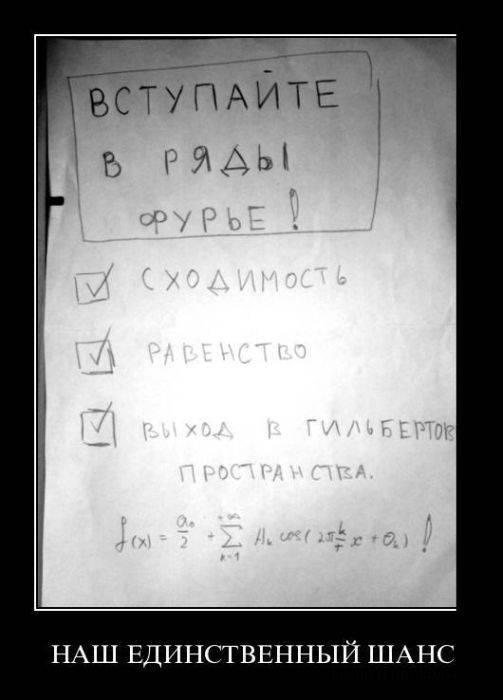 ВСТУПАЙТЕ
В РЯДЫ
ФУРЬЕ!
СХОДИМОСТЬ
РАВЕНСТВО
ВЫХОД В ГИЛЬБЕРТОВ
ПРОСТРАНСТВА.
f(x) = a₀/2 + ∑ₖ₌₁⁺∞ Aₖ cos(2π k/T x + θₖ) !
НАШ ЕДИНСТВЕННЫЙ ШАНС